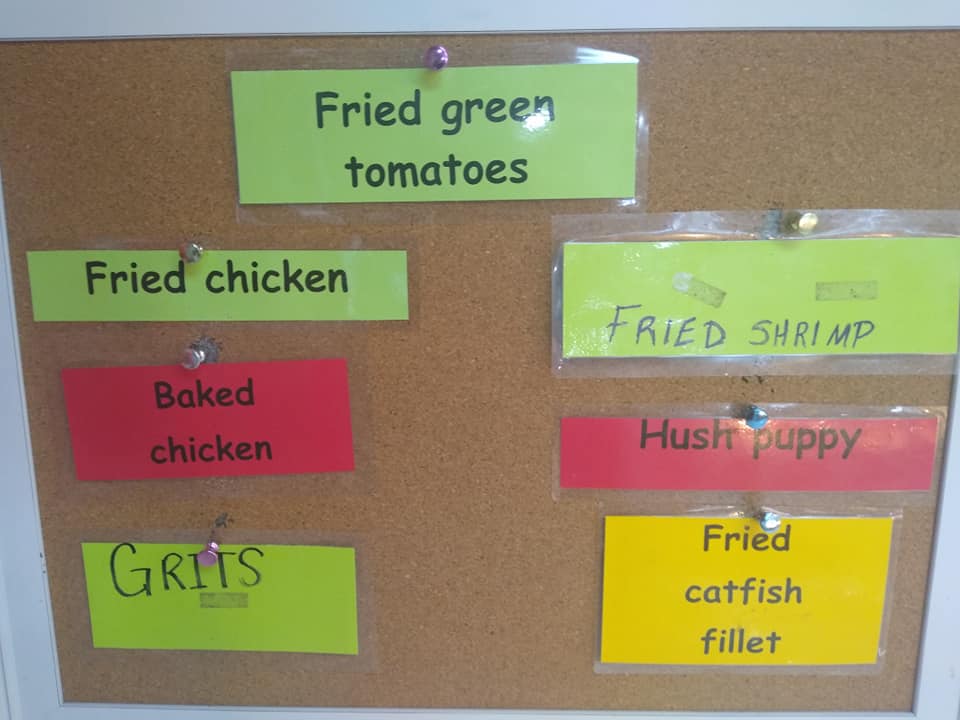 Fried green
tomatoes
Fried chicken
FRIED SHRIMP
Baked
chicken
Hush puppy
GRITS
Fried
catfish
fillet